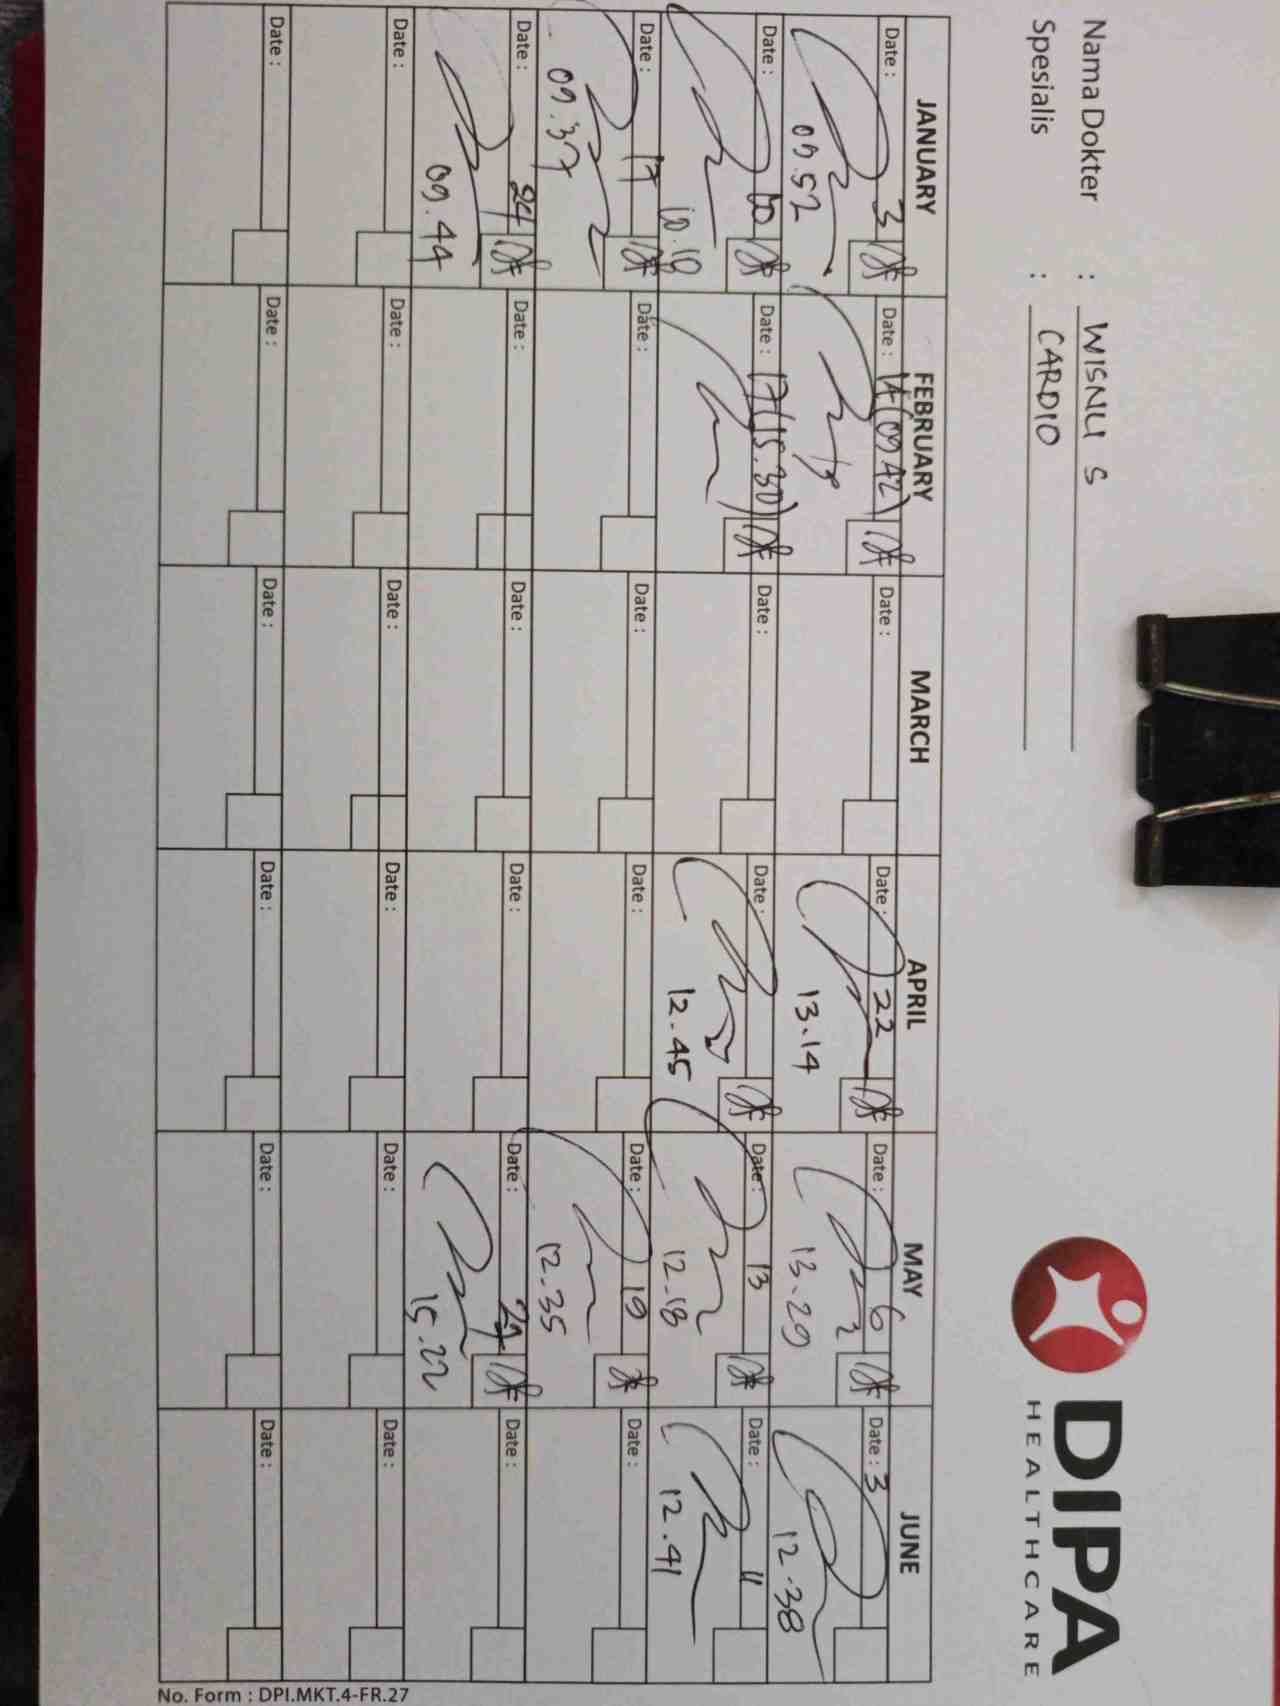 Nama Dokter : WISNU S
Spesialis : CARDIO
DIPA
HEALTHCARE
JANUARY FEBRUARY MARCH APRIL MAY JUNE
Date: 3 Date: 14 (09.42) Date: Date: 22 Date: 6 Date: 3
09.52 13.14 13.29 12.38
Date: 10 Date: 17 (15.30) Date: Date: Date: 13 Date: 11
10.10 12.45 12.18 12.41
Date: 17 Date: Date: Date: Date: 19 Date:
09.37 12.35
Date: 24 Date: Date: Date: Date: 27 Date:
09.44 15.22
Date: Date: Date: Date: Date: Date:
Date: Date: Date: Date: Date: Date:
No. Form : DPI.MKT.4-FR.27